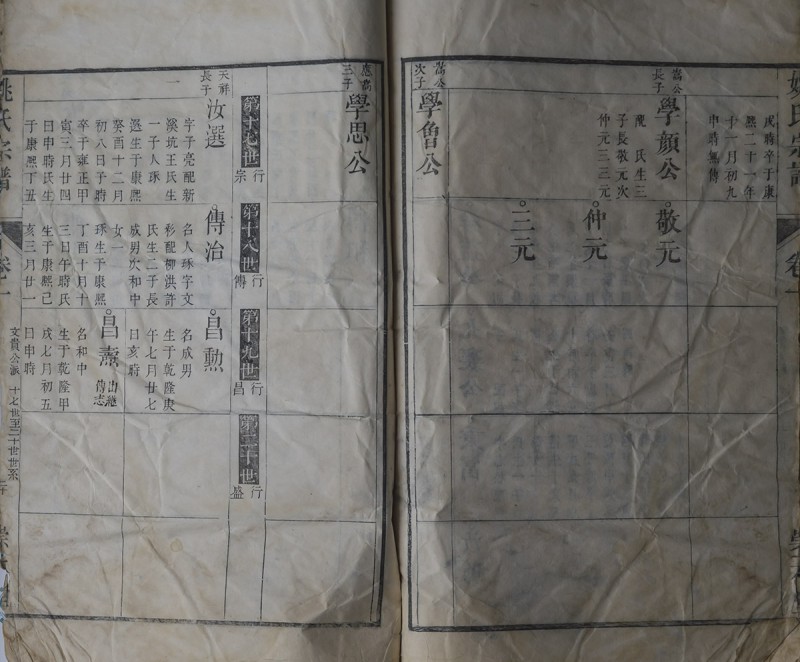 姚氏宗譜
卷一
戌時卒于康
熙二十一年
十一月初九
申時無傳
嵩公
長子
學顏公
氏生三
子長敬元次
仲元三三元
敬元
仲元
三元
嵩公
次子
學魯公
應嵩
三子
學思公
第十七世
行宗
第十八世
行傳
第十九世
行昌
第二十世
行盛
天祥
長子
汝選
字子亮配新
溪坑王氏生
一子人琢
選生于康熙
癸酉十二月
初八日子時
卒于雍正甲
寅三月廿四
日申時氏生
于康熙丁丑
傳治
名人琢字文
彩配柳洪許
氏生二子長
成男次和中
女一
琢生于康熙
丁酉十月十
三日午時氏
生于康熙己
亥三月廿一
昌勳
名成男
生于乾隆庚
午七月廿七
日亥時
昌燾
出繼
傳志
名和中
生于乾隆甲
戌七月初五
日申時
姚氏宗譜
卷一
文貴公派
十七世至二十世世系